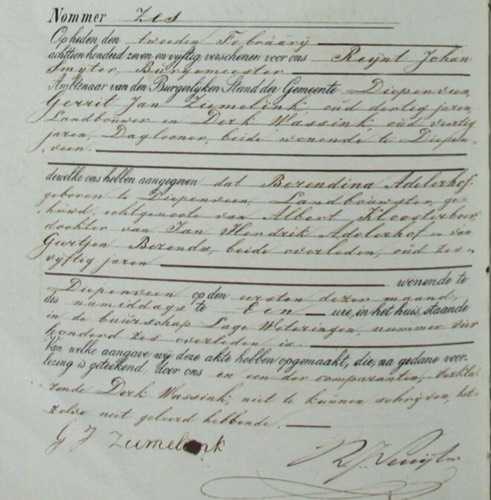 Nommer Zes
Op heden den tweeden Februarij
achttien honderd zeven en vyftig verschenen voor ons Reijnt Johan
Suyter, Burgemeester
Ambtenaar van den Burgerlijken Stand der Gemeente Diepenveen
Gerrit Jan Zumelink, oud dertig jaren,
Landbouwer en Derk Wassink, oud veertig
jaren, Daglooner, beide wonende te Diepen
veen.
dewelke ons hebben aangegeven dat Berendina Adelerhof
geboren te Diepenveen, Landbouwster, ge
huwd, echtgenoote van Albert Kloosterboer,
dochter van Jan Hendrik Adelerhof en van
Geertjen Berends, beide overleden, oud zes en
vyftig jaren
wonende te
Diepenveen op den eersten dezer maand,
des namiddags te Een ure, in het huis, staande
in de buurschap Lage Weteringen, nummer vier
honderd zes overleden is.
Van welke aangave wij deze akte hebben opgemaakt, die, na gedane voor-
lezing is geteekend, door ons en een der comparanten, verkla
rende Derk Wassink, niet te kunnen schrijven, het
zelve niet geleerd hebbende.
G J Zumelink